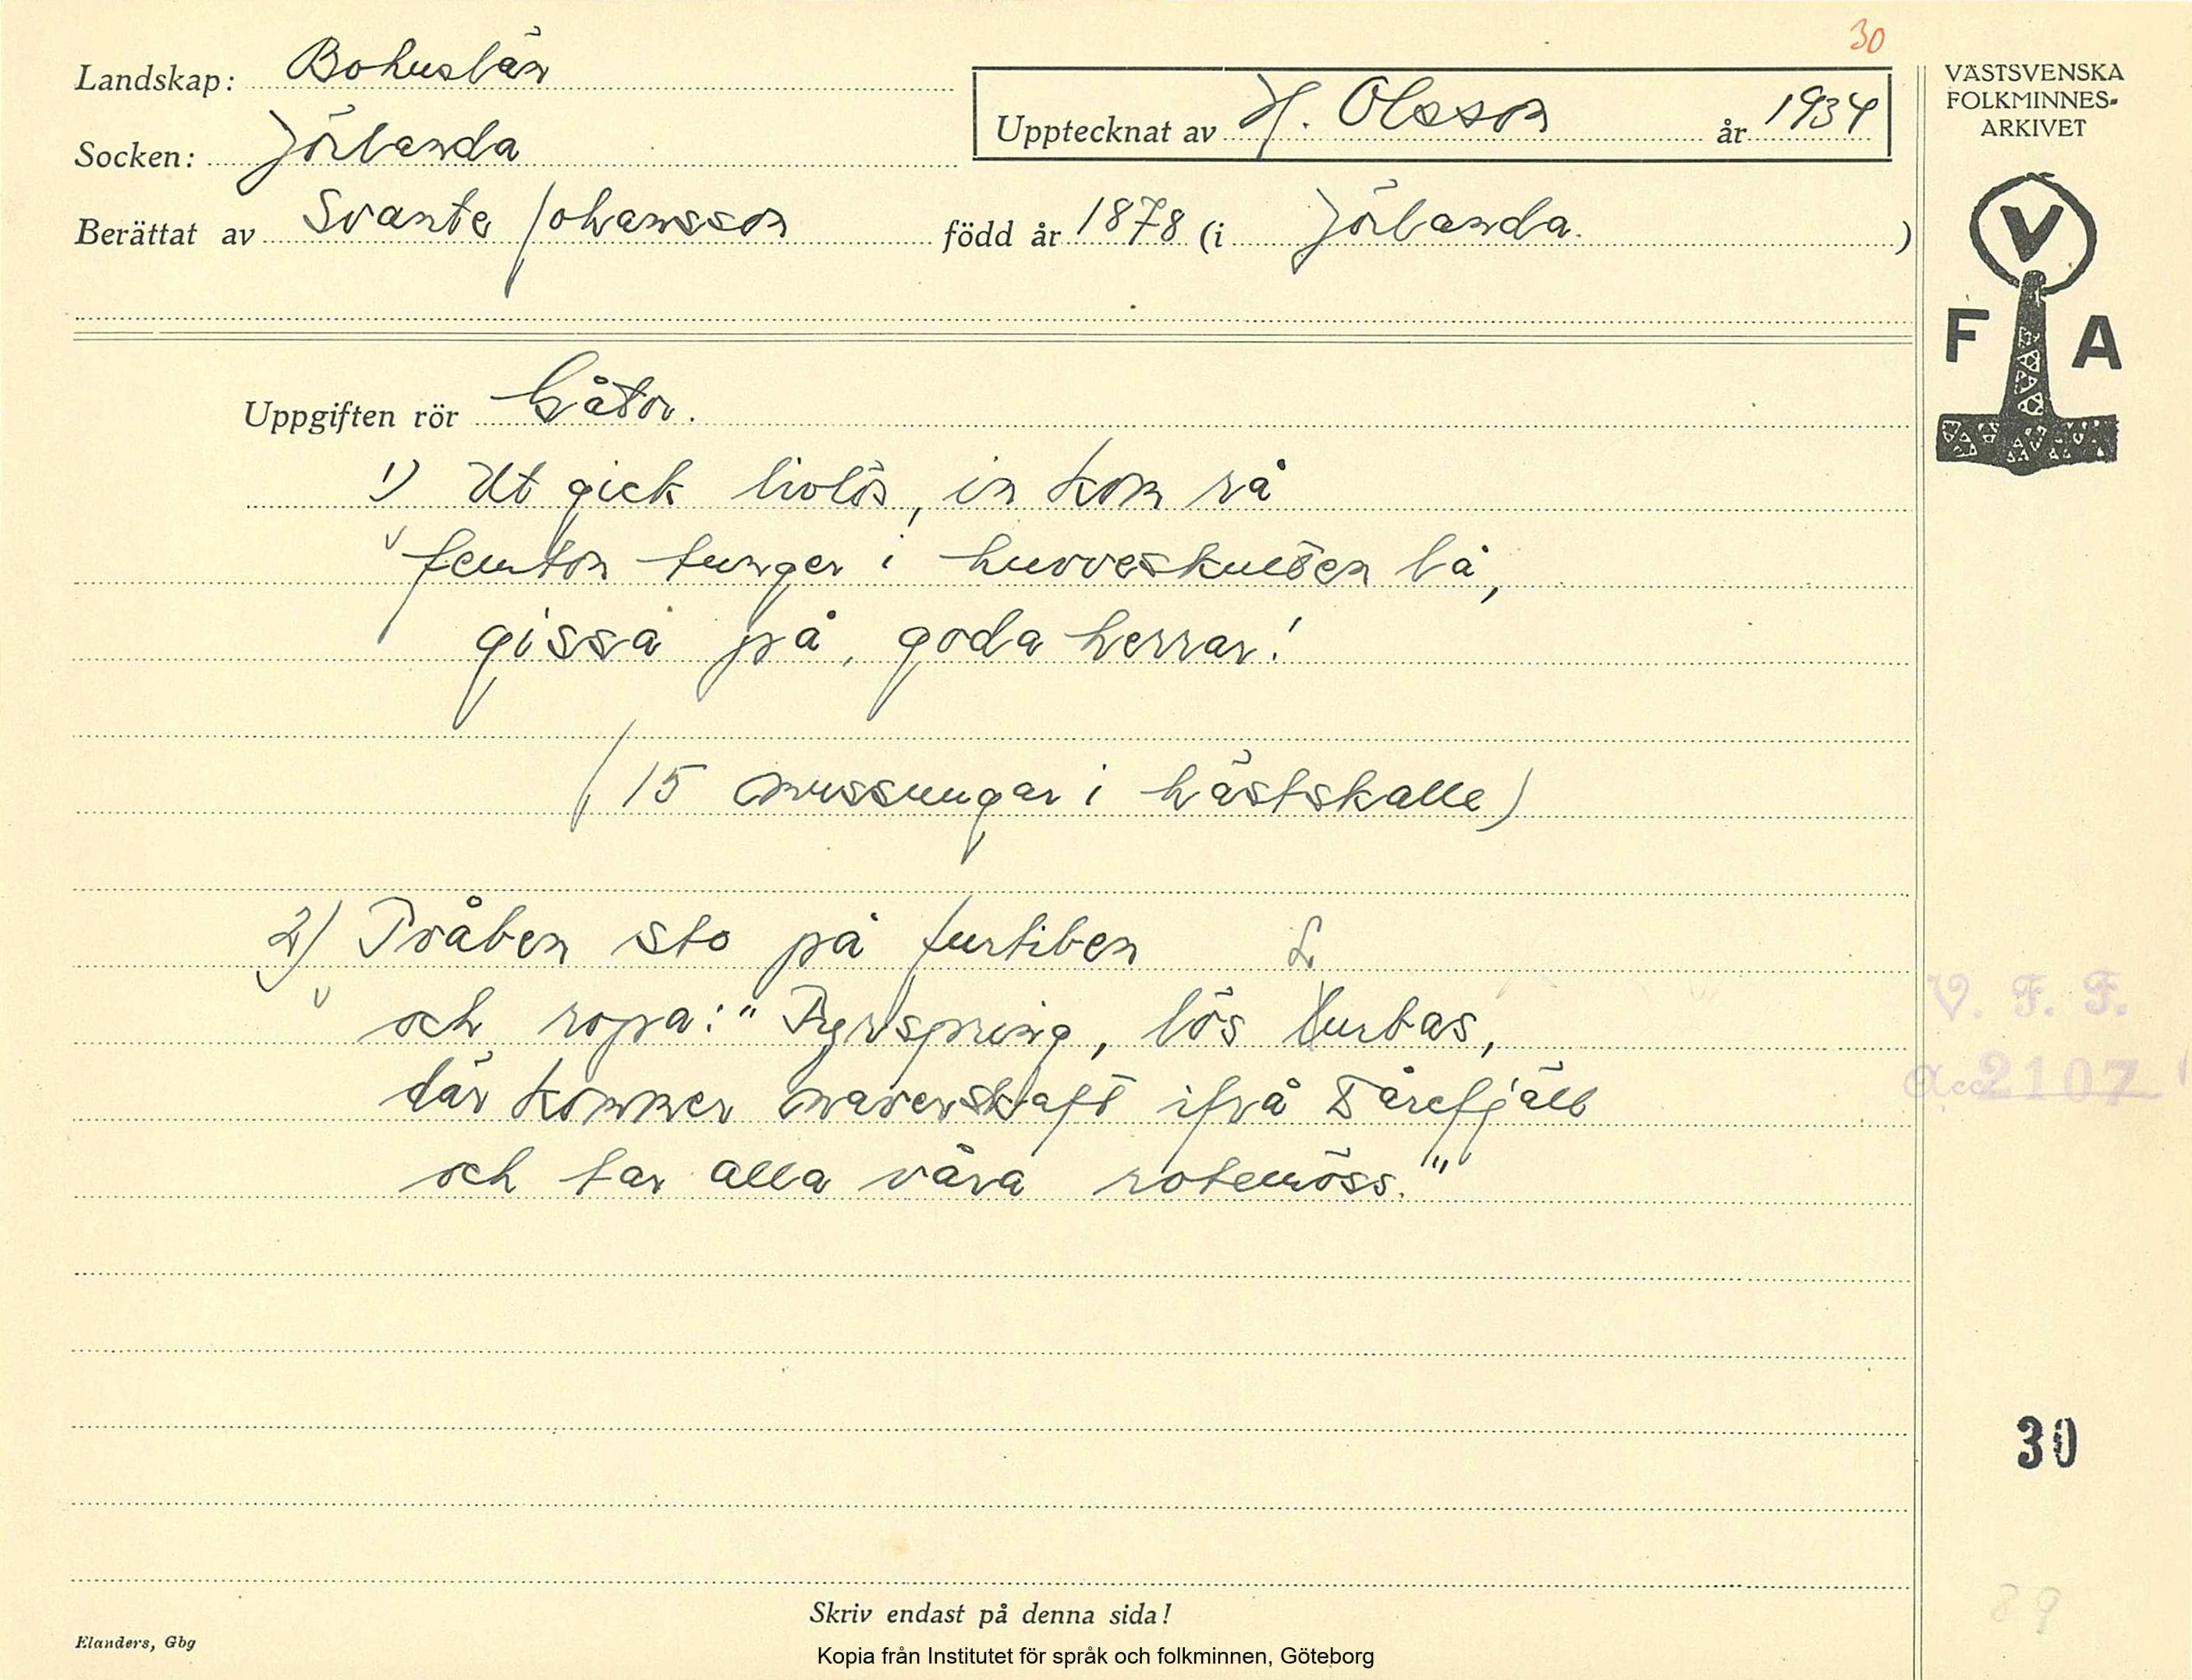 30
Landskap: Bohuslän
Socken: Jörlanda
Upptecknat av H. Olsson år 1934
Berättat av Svante Johansson född år 1878 (i Jörlanda.)
VÄSTSVENSKA
FOLKMINNES-
ARKIVET
V
F A
Uppgiften rör Gåtor.
1) Ut gick livlös, in kom rå
femton tunger i huvveskuel̃en lå,
gissa på, goda herrar!
(15 mussungar i hästskalle)
2) Tvåben sto på furtiben
L
och ropa: "Fyrspring, lös Lurbas,
där kommer naverskaft ifrå Tårefjäll
och tar alla våra rotemöss."
V. F. F.
Acc 2107
30
89
Skriv endast på denna sida!
Elanders, Gbg
Kopia från Institutet för språk och folkminnen, Göteborg